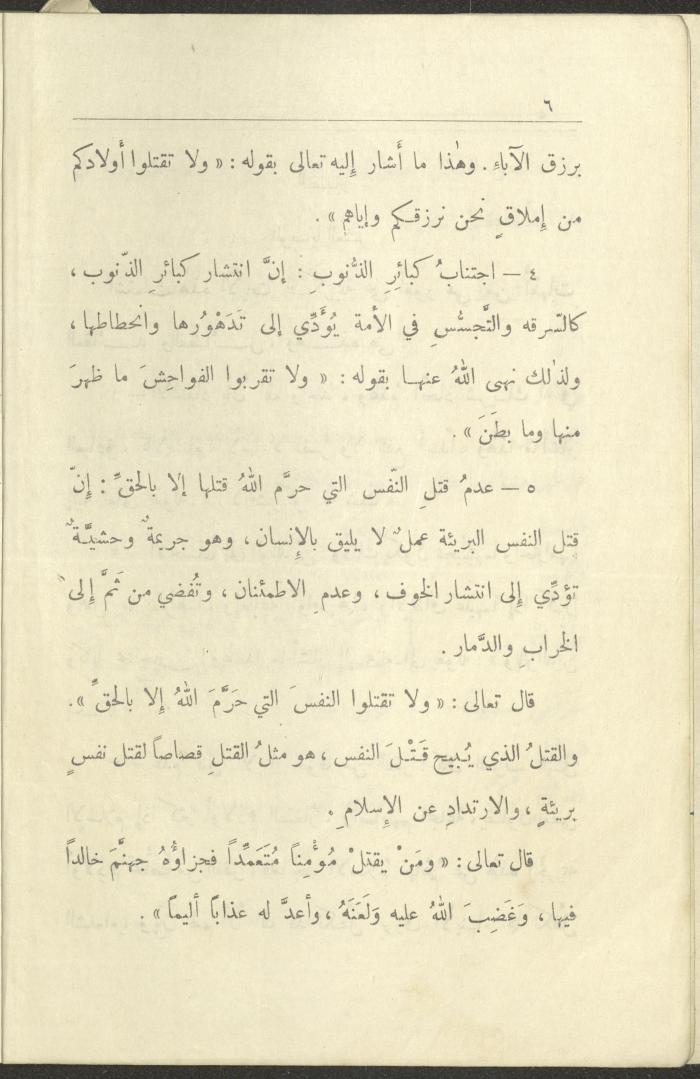 ٦
برزق الآباءِ. وهٰذا ما أَشار إِليه تعالى بقوله: « ولا تقتلوا أَولادكم
من إِملاقٍ نحن نرزقكم وإياهم ».
٤ – اجتنابُ كبائِرِ الذُّنوبِ: إنَّ انتشار كبائرِ الذّنوب،
كالسّرقه والتَّجسُّسِ في الأمة يُؤَدِّي إلى تَدَهْوُرها وانحطاطها،
ولذٰلك نهى اللهُ عنها بقوله: « ولا تقربوا الفواحِشَ ما ظهرَ
منها وما بطَنَ ».
٥ – عدمُ قتلِ النّفس التي حرَّم اللهُ قتلها إلا بالحقِّ: إِنّ
قتل النفس البريئة عملٌ لا يليق بالإِنسان، وهو جريمةٌ وحشيَّةٌ
تؤدِّي إِلى انتشار الخوف، وعدمِ الاطمئنان، وتُفضي من ثَمَّ إِلى
الخرابِ والدَّمار.
قال تعالى: « ولا تقتلوا النفسَ التي حَرَّمَ اللهُ إِلا بالحقِّ ».
والقتلُ الذي يُبيح قَتْلَ النفس، هو مثلُ القتلِ قصاصاً لقتل نفسٍ
بريئةٍ، والارتدادِ عن الإِسلامِ.
قال تعالى: « ومَنْ يقتلْ مُؤْمِناً مُتَعَمِّداً فجزاؤُهُ جهنَّمَ خالداً
فيها، وَغَضِبَ اللهُ عليه وَلَعَنَهُ، وأعدَّ له عذاباً أليماً ».